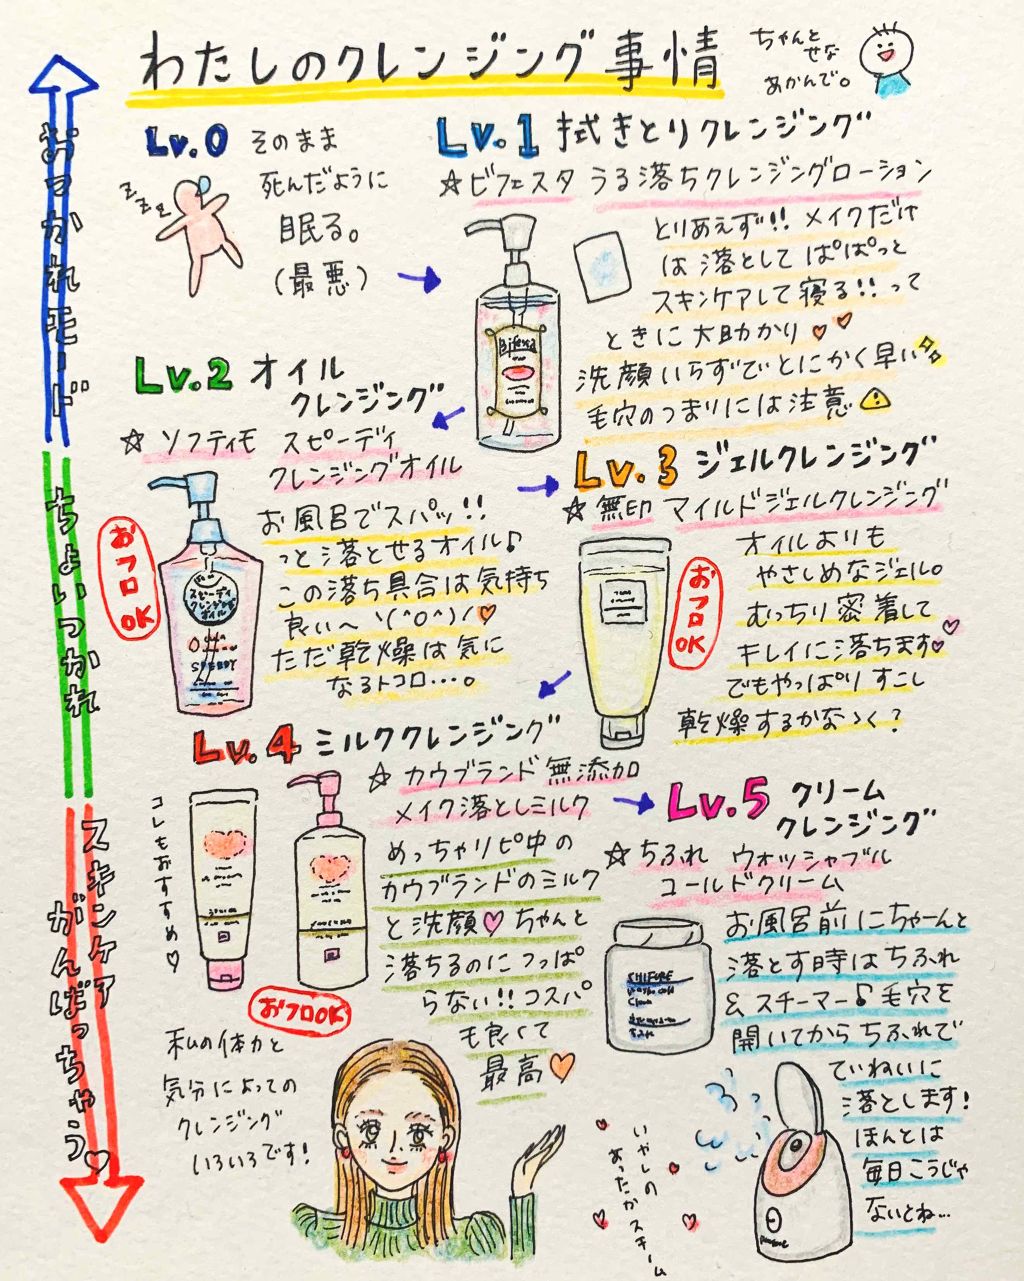 わたしのクレンジング事情
ちゃんと
せな
あかんで。
Lv.0 そのまま
zzzz
死んだように
眠る。
(最悪)
Lv.1 拭きとりクレンジング
☆ビフェスタ うる落ちクレンジングローション
Bifesta
とりあえず!! メイクだけ
は落としてぱぱっと
スキンケアして寝る!!って
ときに大助かり♡♡
洗顔いらずでとにかく早い
毛穴のつまりには注意⚠
Lv.2 オイル
クレンジング
☆ソフティモ スピーディ
クレンジングオイル
おフロOK
スピーディ
クレンジング
オイル
SPEEDY
お風呂でスパッ!!
っと落とせるオイル♪
この落ち具合は気持ち
良い〜ヽ(^O^)ノ♡
ただ乾燥は気に
なるトコロ…。
Lv.3 ジェルクレンジング
☆無印 マイルドジェルクレンジング
おフロOK
オイルよりも
やさしめなジェル。
むっちり密着して
キレイに落ちます♡♡
でもやっぱりすこし
乾燥するかなゝく?
Lv.4 ミルククレンジング
☆カウブランド 無添加
メイク落としミルク
コレもおすすめ♡
おフロOK
めっちゃリピ中の
カウブランドのミルク
と洗顔♡ちゃんと
落ちるのにつっぱ
らない!!コスパ
も良くて
最高♡
Lv.5 クリーム
クレンジング
☆ちふれ ウォッシャブル
コールドクリーム
CHIFURE
お風呂前にちゃーんと
落とす時はちふれ
&スチーマー♪毛穴を
開いてからちふれで
ていねいに
落とします!
ほんとは
毎日こうじゃ
ないとね…
いやしの
あったかスチーム
私の体力と
気分によっての
クレンジング
いろいろです!
おつかれモード
ちょいつかれ
スキンケア
がんばっちゃう♡